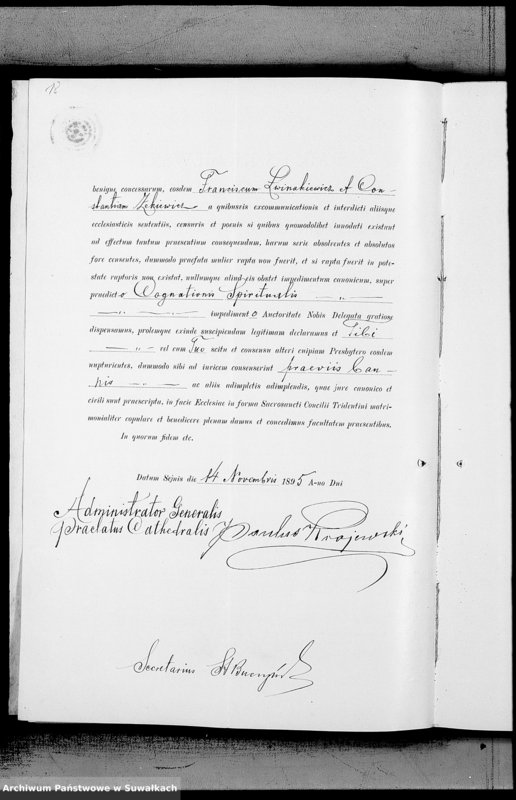 12
benique concessarum, eosdem Franciscum Zwinakiewicz et Con-
stantiam Żekiewicz a quibusvis excommunicationis et interdicti aliisque
ecclesiasticis sententiis, censuris et poenis si quibus quomodolibet innodati existant
ad effectum tantum praesentium consequendum, harum serie absolventes et absolutos
fore censentes, dummodo praefata mulier rapta non fuerit, et si rapta fuerit in pote-
state raptoris non existat, nullumque aliud eis obstet impedimentum canonicum, super
praedicto Cognationis Spiritualis — „ —
— „ — „ — impedimento Auctoritate Nobis Delegata gratiose
dispensamus, prolemque exinde suscipiendam legitimam declaramus et Tibi
— „ — vel cum Tuo scitu et consensu alteri cuipiam Presbytero eosdem
nupturientes, dummodo sibi ad invicem consenserint praeviis Ban-
nis — „ — ac aliis adimpletis adimplendis, quae jure canonico et
civili sunt praescripta, in facie Ecclesiae in forma Sacrosancti Concilii Tridentini matri-
monialiter copulare et benedicere plenam damus et concedimus facultatem praesentibus.
In quorum fidem etc.
Datum Sejnis die 14 Novembris 1895 A-no Dni
Administrator Generalis
Praelatus Cathedralis Paulus Krajewski
Secretarius
Archiwum Państwowe w Suwałkach